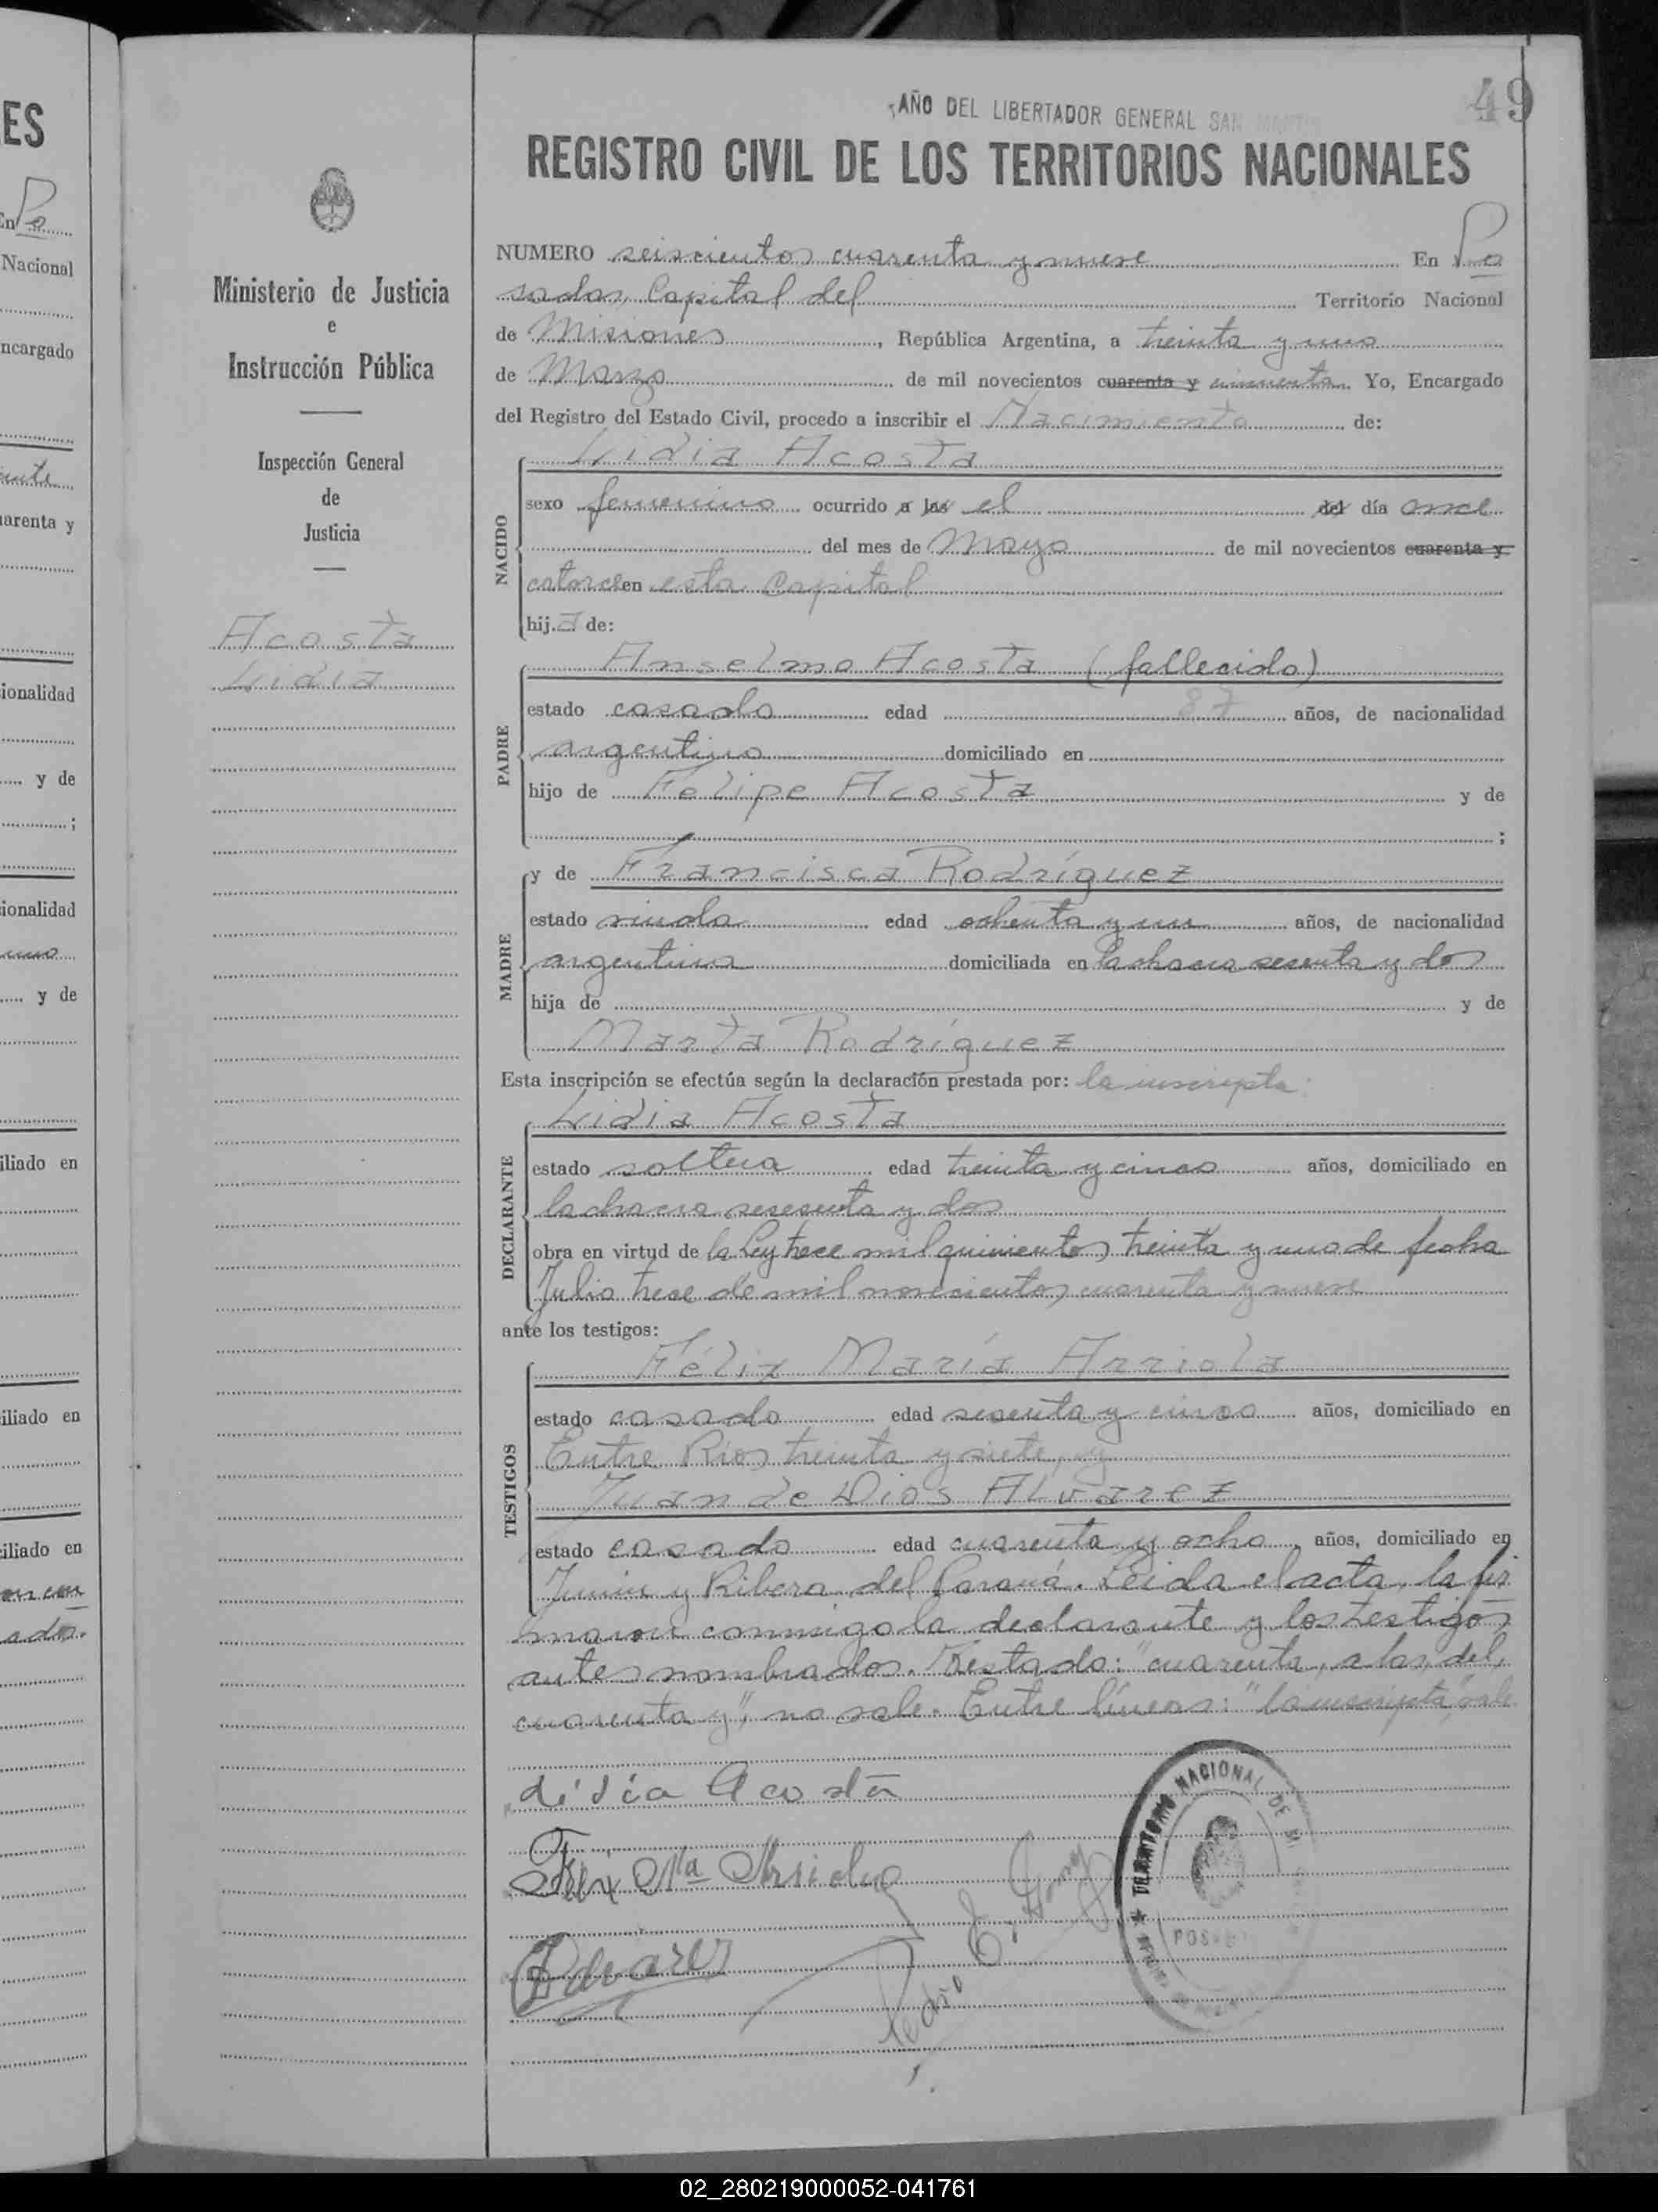 ES
En Po
Nacional
ncargado
arenta y
ionalidad
y de
;
ionalidad
uno
y de
iliado en
iliado en
iliado en
ado.
Ministerio de Justicia
e
Instrucción Pública
Inspección General
de
Justicia
Acosta
Lidia
49
AÑO DEL LIBERTADOR GENERAL SAN MARTIN
REGISTRO CIVIL DE LOS TERRITORIOS NACIONALES
NUMERO seiscientos cuarenta y nueve En Po
sadas, Capital del Territorio Nacional
de Misiones, República Argentina, a treinta y uno
de Marzo de mil novecientos cuarenta y cincuenta. Yo, Encargado
del Registro del Estado Civil, procedo a inscribir el Nacimiento de:
Lidia Acosta
NACIDO
sexo femenino ocurrido a las el del día once
del mes de Mayo de mil novecientos cuarenta y
catorce en esta Capital
hija de:
Anselmo Acosta (fallecido)
PADRE
estado casado edad 87 años, de nacionalidad
argentino domiciliado en
hijo de Felipe Acosta y de
;
y de Francisca Rodríguez
MADRE
estado viuda edad ochenta y un años, de nacionalidad
argentina domiciliada en la chacra sesenta y dos
hija de y de
Marta Rodríguez
Esta inscripción se efectúa según la declaración prestada por: la inscripta:
Lidia Acosta
DECLARANTE
estado soltera edad treinta y cinco años, domiciliado en
la chacra sesenta y dos
obra en virtud de la Ley trece mil quinientos treinta y uno de fecha
Julio trece de mil novecientos cuarenta y nueve
ante los testigos:
Félix María Arriola
TESTIGOS
estado casado edad sesenta y cinco años, domiciliado en
Entre Ríos treinta y siete, y
Juan de Dios Alvarez
estado casado edad cuarenta y ocho, años, domiciliado en
Junin y Ribera del Paraná. Leida el acta, la fir
maron conmigo la declarante y los testigos
antes nombrados. Testado: "cuarenta, a las, del,
cuarenta y", no vale. Entre líneas: "la inscripta", vale
Lidia Acosta
Felix Ma Arriola
Alvarez
Pedro
TERRITORIO NACIONAL DE MI
POS
02_280219000052-041761